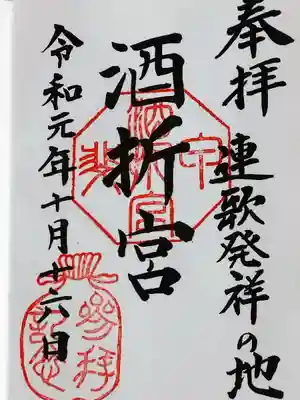 奉拝 連歌発祥の地
酒折宮
令和元年十月十六日